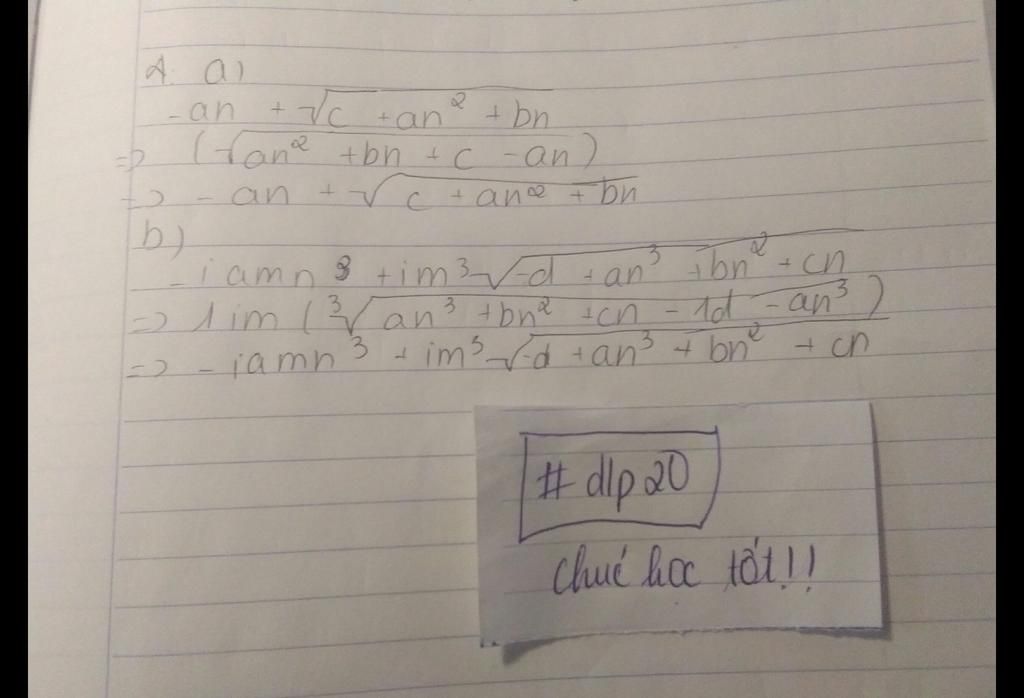 1. a)
-an + √c + an² + bn
=> (√an² + bn + c - an)
=> - an + √c + an² + bn
b)
- iamn 3 + im³√-d + an³ + bn² + cn
=> 1im (³√an³ + bn² + cn - 1d - an³)
=> - iamn³ + im³√-d + an³ + bn² + cn
# dlp20
chuć học tốt!!